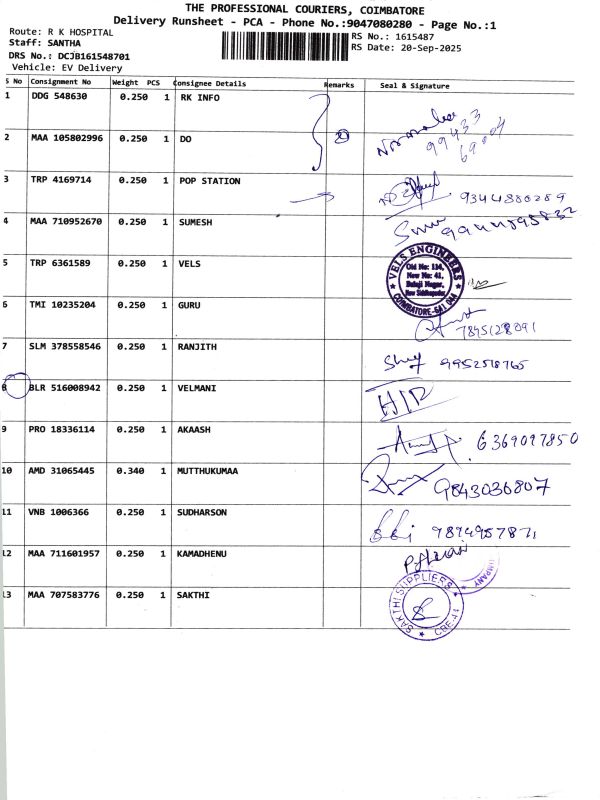 THE PROFESSIONAL COURIERS, COIMBATORE
Delivery Runsheet - PCA - Phone No.:9047080280 - Page No.:1
Route: R K HOSPITAL
Staff: SANTHA
DRS No.: DCJB161548701
Vehicle: EV Delivery
RS No.: 1615487
RS Date: 20-Sep-2025
S No Consignment No Weight PCS Consignee Details Remarks Seal & Signature
1 DDG 548630 0.250 1 RK INFO
99433
69004
2 MAA 105802996 0.250 1 DO
3 TRP 4169714 0.250 1 POP STATION 9344880289
4 MAA 710952670 0.250 1 SUMESH
5 TRP 6361589 0.250 1 VELS
VELS ENGINEERS
Old No: 114,
New No: 41,
Balaji Nagar,
New Siddhapudur
COIMBATORE-641 044
6 TMI 10235204 0.250 1 GURU 7845128091
7 SLM 378558546 0.250 1 RANJITH 9952518765
8 BLR 516008942 0.250 1 VELMANI
9 PRO 18336114 0.250 1 AKAASH 6369097850
10 AMD 31065445 0.340 1 MUTTHUKUMAA 9843036807
11 VNB 1006366 0.250 1 SUDHARSON
12 MAA 711601957 0.250 1 KAMADHENU
13 MAA 707583776 0.250 1 SAKTHI
SAKTHI SUPPLIERS
CBE-44